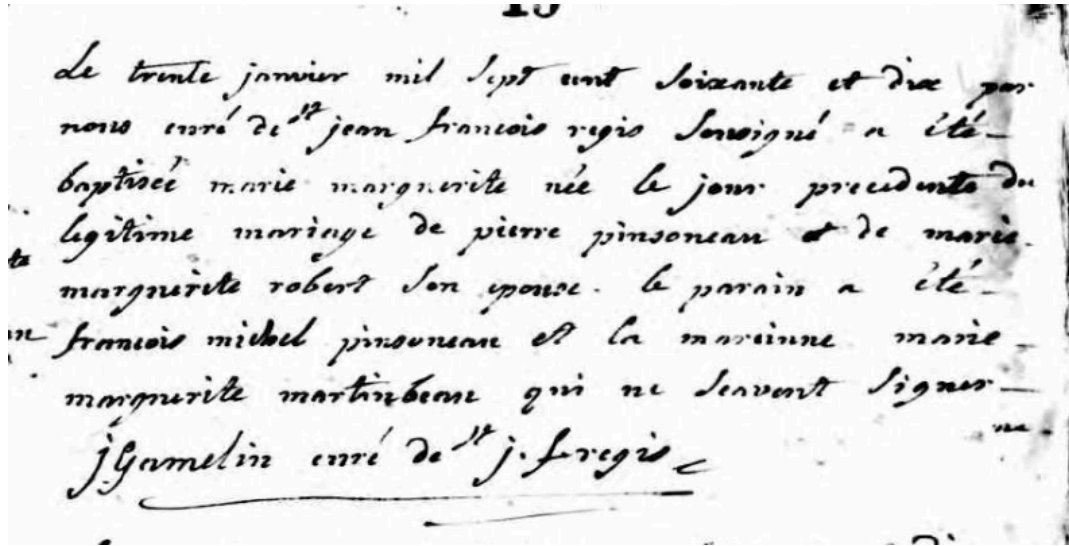 19
Le trente janvier mil sept cent soixante et dix par
nous curé de st jean francois regis sousigné a été
baptiseé marie marguerite née le jour precedente du
legitime mariage de pierre pinsoneau et de marie
marguerite robert son epouse. le parain a été
francois michel pinsoneau et la mareinne marie
marguerite martinbeau qui ne scavent signer
j Gamelin curé de st j. f regis